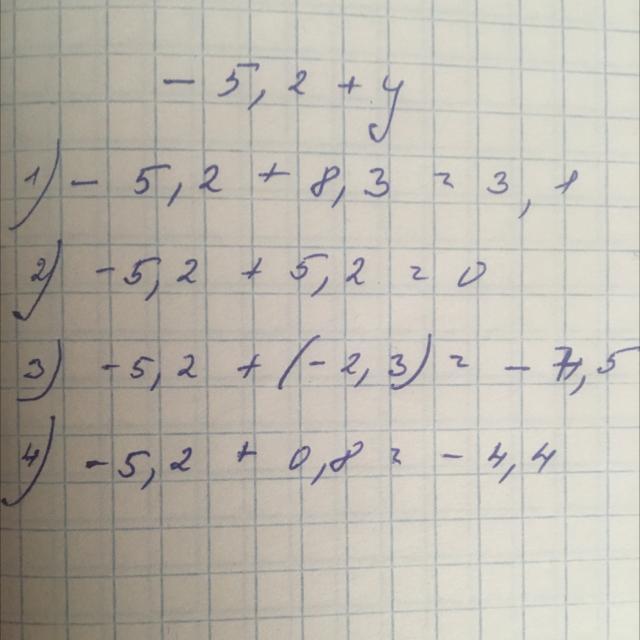 - 5,2 + y
1) - 5,2 + 8,3 = 3,1
2) - 5,2 + 5,2 = 0
3) - 5,2 + (- 2,3) = - 7,5
4) - 5,2 + 0,8 = - 4,4